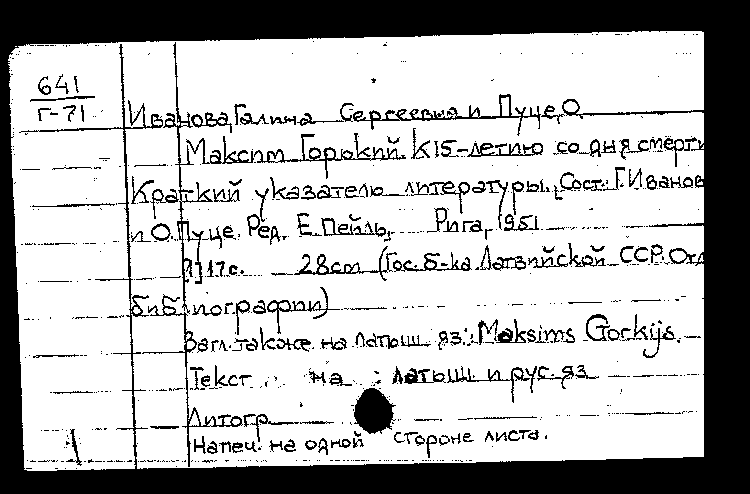 641
Г-71
Иванова, Галина Сергеевна и Пуце, О.
Максим Горький. К 15-летию со дня смерти
Краткий указатель литературы. [Сост.: Г. Иванов
и О. Пуце. Ред. Е. Пейль, Рига, 1951
17 с. 28 cm (Гос. б-ка Латвийской ССР. Отд
библиографии)
Загл. также на латыш. яз.: Maksims Gorkijs.
Текст на латыш и рус. яз
Литогр.
Напеч. на одной стороне листа.